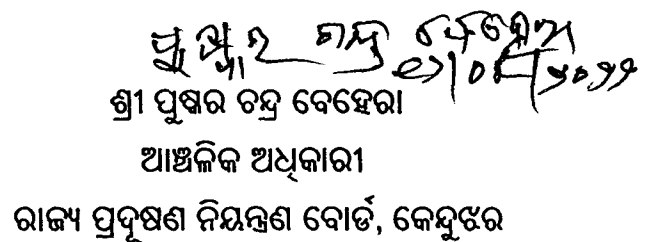 ପୁଷ୍କର ଚନ୍ଦ୍ର ବେହେରା
ଶ୍ରୀ ପୁଷ୍କର ଚନ୍ଦ୍ର ବେହେରା
ଆଞ୍ଚଳିକ ଅଧିକାରୀ
ରାଜ୍ୟ ପ୍ରଦୂଷଣ ନିୟନ୍ତ୍ରଣ ବୋର୍ଡ, କେନ୍ଦୁଝର